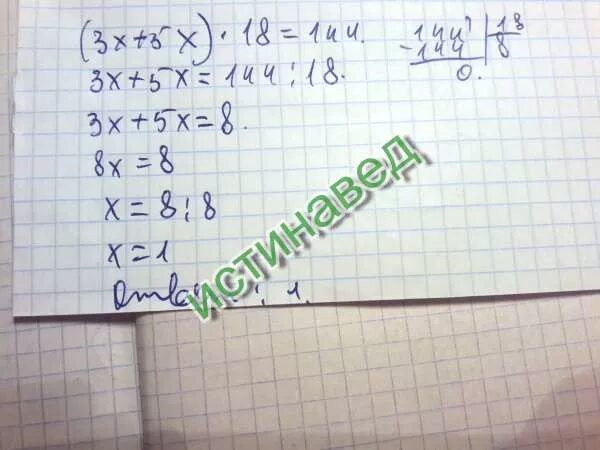 (3x+5x)·18=144.
3x+5x=144:18.
3x+5x=8.
8x=8
x=8:8
x=1
: 1.
144 | 18
-144 | 8
0.
истинавед